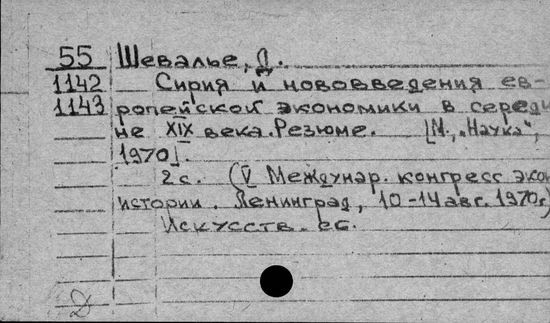 55 Шевалье, Д.
1142 Сирия и нововведения ев-
1143 ропейской экономики в середи
не XIX века. Резюме. [М., "Наука",
1970].
2 с. (V Междунар. конгресс экон
истории. Ленинград, 10-14 авг. 1970г)
Искусств. ес.
Д